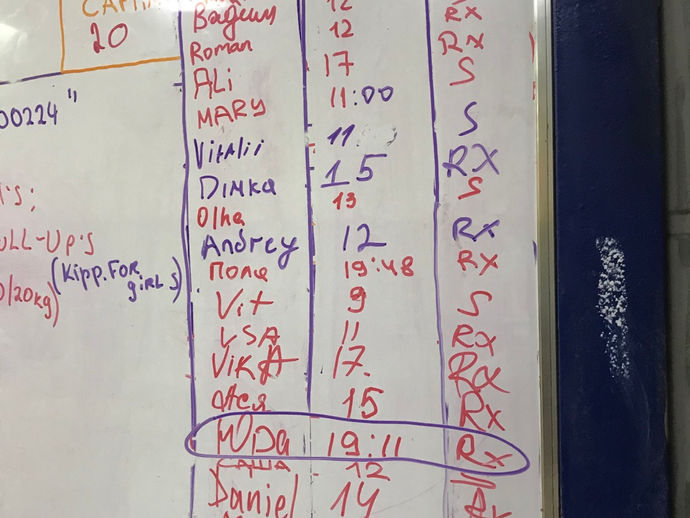 20
Вадим 12 RX
Roman 12 RX
ALi 17 S
MARY 11:00 S
00224"
Vitalii 11 S
Dimka 15 RX
Olha 13 S
Andrey 12 RX
ULL-UP's
(Kipp. FOR
giRLS)
Поли 19:48 RX
0/20kg)
Vit 9 S
LSA 11 RX
VIKA 17. RX
Ася 15 RX
19:11 RX
САША 12
Daniel 14